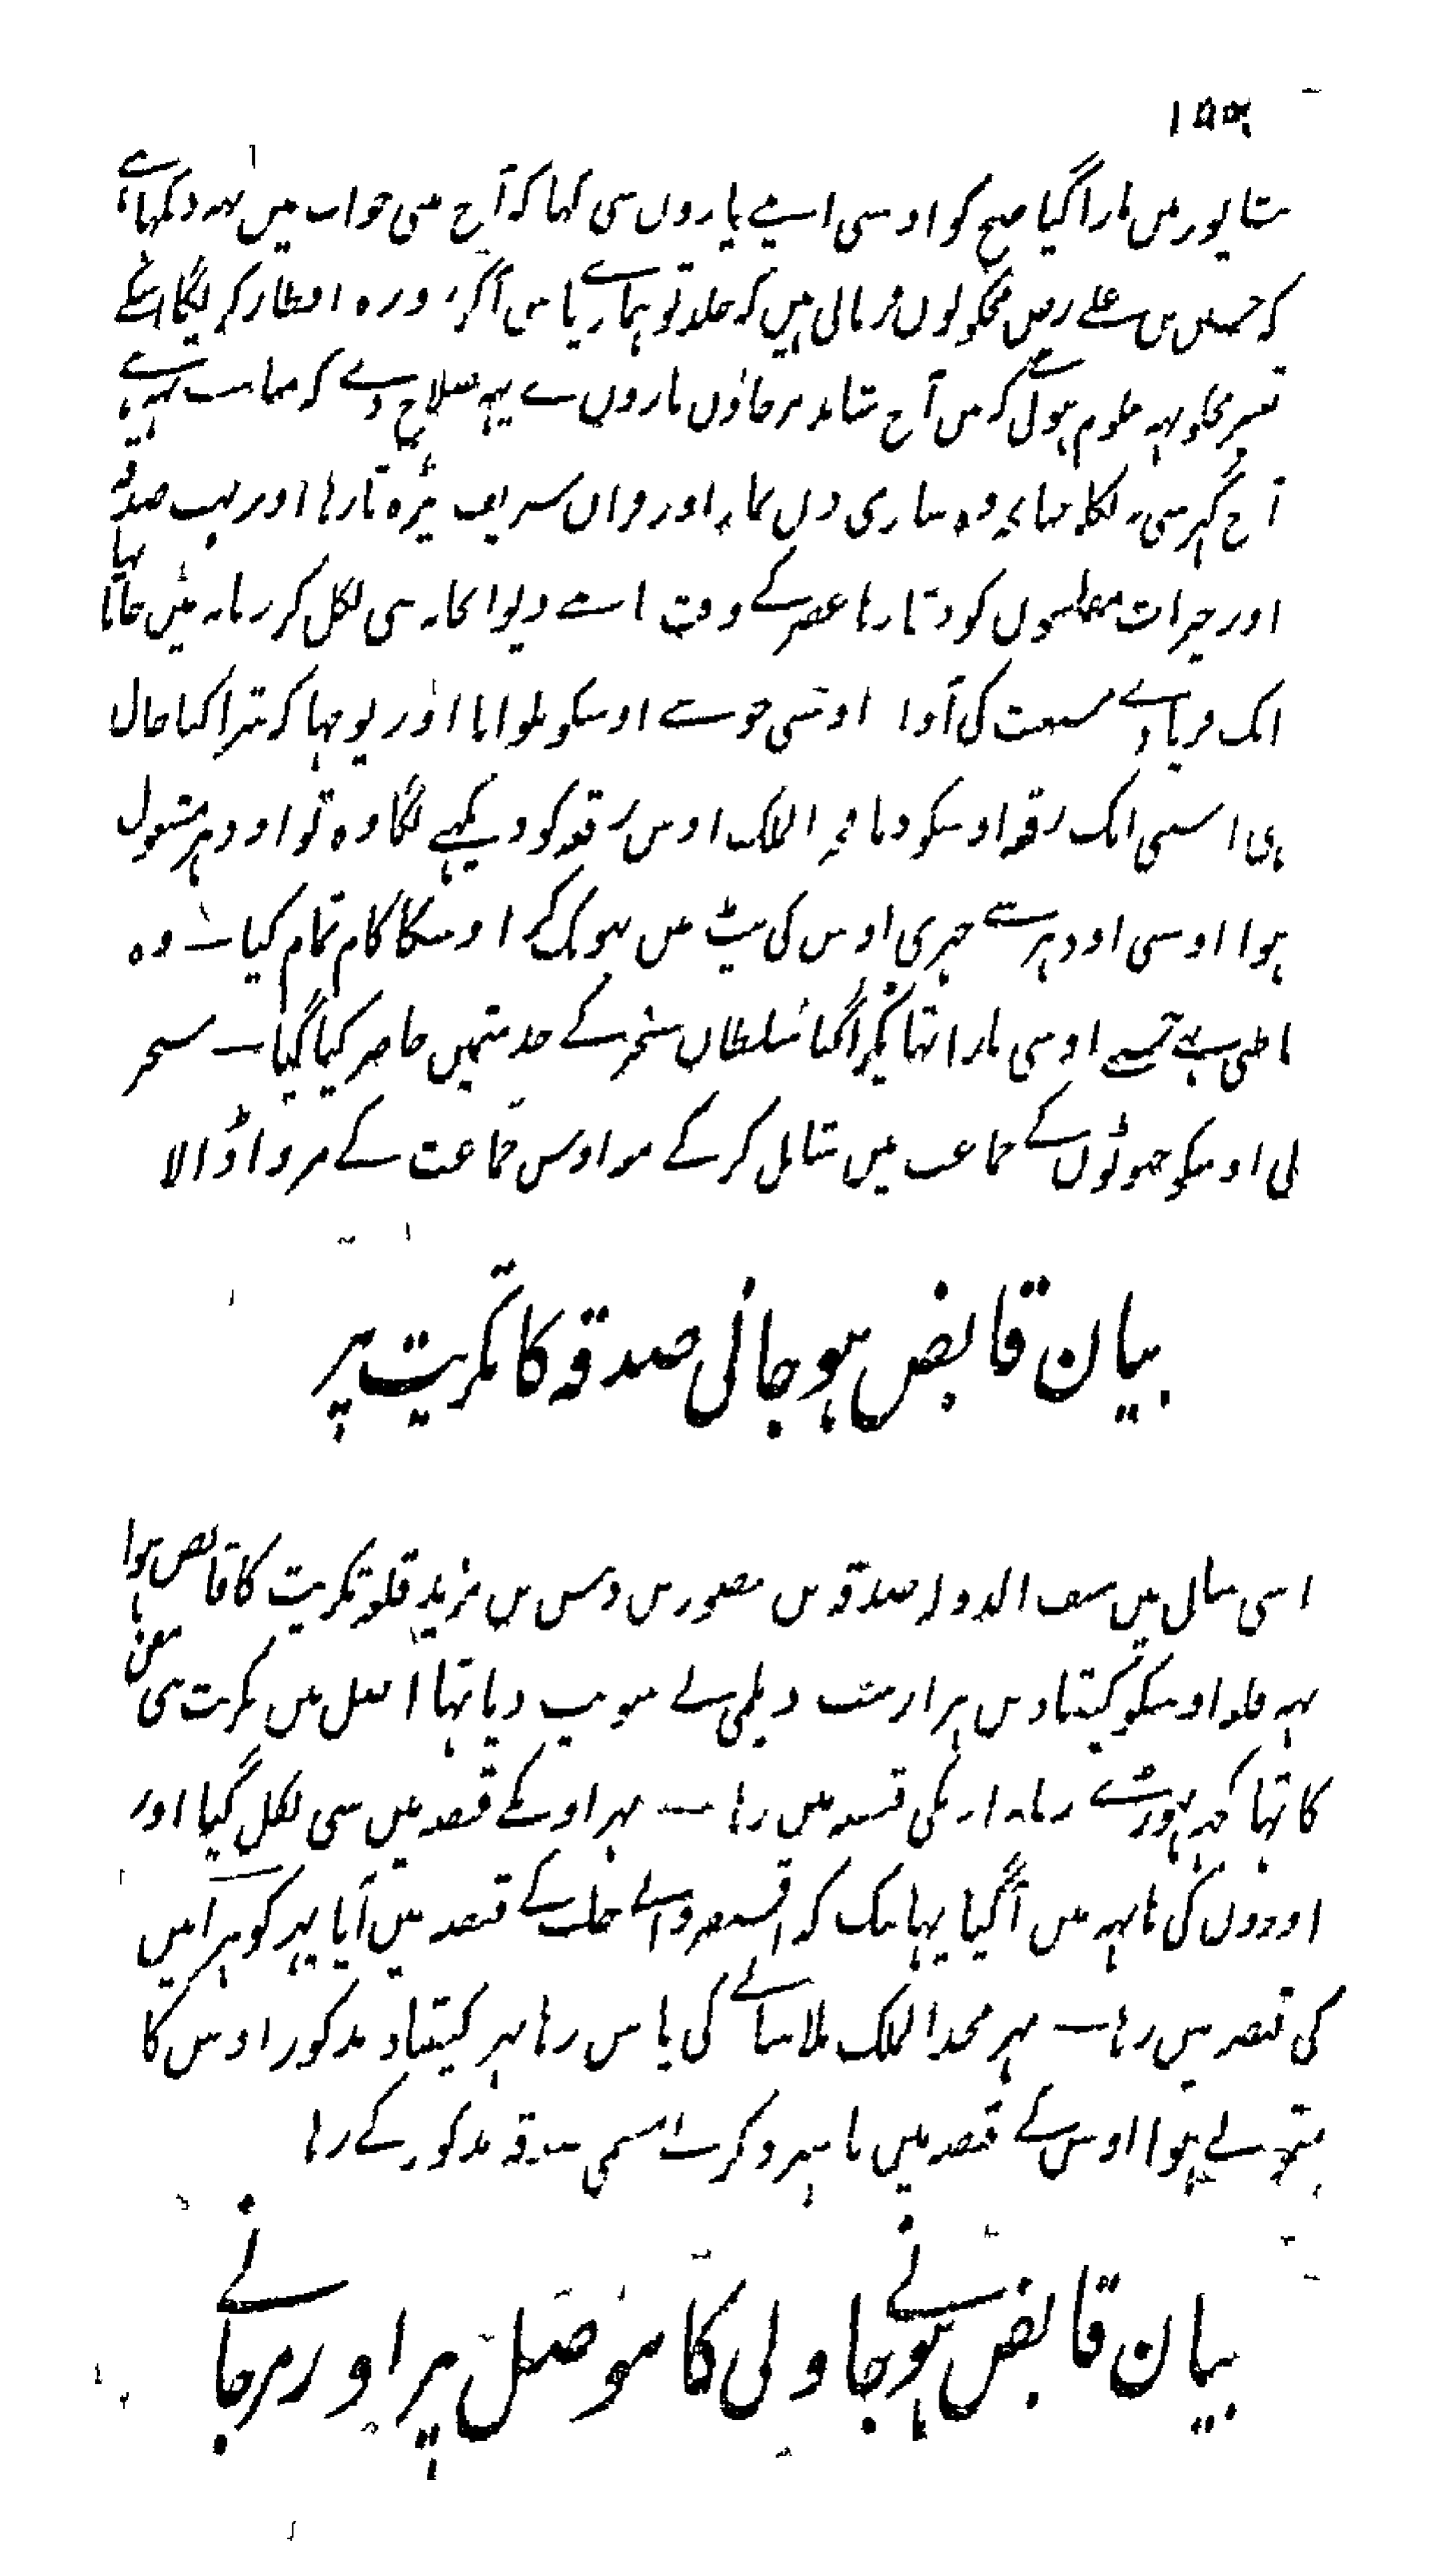 نشاپور میں مارا گیا صبح کو اوسی اپنے یاروں سی کہا کہ آج میں خواب میں یہہ دیکھا ہے
کہ حسین بن علے رض مجکو یوں فرماتی ہیں کہ جلد تو ہمارے پاس آ کر روزہ افطار کر لگا اسلئے
تعبیر مجکو یہہ معلوم ہوئے کہ میں آج شاید مر جاؤں یاروں نے یہہ صلاح دے کہ مناسب یہہ ہے
آج گہر سی نہ نکلا چنانچہ وہ ساری دن نماز اور قران شریف پڑہتا رہا اور بہت صدقہ
اور خیرات مفلسوں کو دیتا رہا عصر کے وقت اپنے دیوانخانہ سی نکل کر زنانہ میں جاتا تہا
ایک فریادے کی آواز اوسنی اوسکو بلوایا اور پوچہا کہ تیرا کیا حال
ہی اسنی ایک رقعہ اوسکو دیا فخر الملک اوس رقعہ کو دیکہنے لگا وہ تو اودہر مشغول
ہوا اوسی اودہر سے چہری اوس کی پیٹ میں بہونک کر اوسکا کام تمام کیا ـ وہ
باطنی جسنے اوسی مارا تہا پکڑا گیا سلطان سنجر کے خدمتمیں حاضر کیا گیا ـ سنجر
نی اوسکو جہوٹوں کے جماعت میں شامل کر کے مع اوس جماعت کے مروا ڈالا
بیان قابض ہو جانی صدقہ کا تکریت پر
اسی سال میں سیف الدولہ صدقہ بن منصور بن دبیس بن مزید قلعہ تکریت کا قابض ہوا
یہہ قلعہ اوسکو کیقباد بن ہزارسب دیلمی نے سونپ دیا تہا اصل میں تکریت بنی معن
کا تہا کہ تہوڑے زمانہ اونکی قبضہ میں رہا ـ پہر اونکے قبضہ میں سی نکل گیا اور
اوروں کی ہاتہہ میں آ گیا یہانتک کہ اقسنقر والے حلب کے قبضہ میں آیا پہر کوہر آئیں
کی قبضہ میں رہا ـ پہر مجد الملک بلاسانے کی پاس رہا پہر کیقباد مذکور اوس کا
متولے ہوا اوس کے قبضہ میں تا سپرد کرنے مسمی صدقہ مذکور کے رہا
بیان قابض ہونے جاولی کا موصل پر اور مر جانے